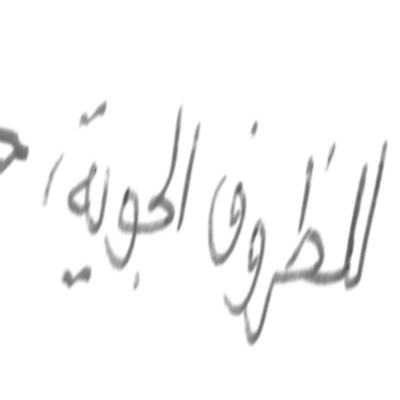 للظروف الجوية،